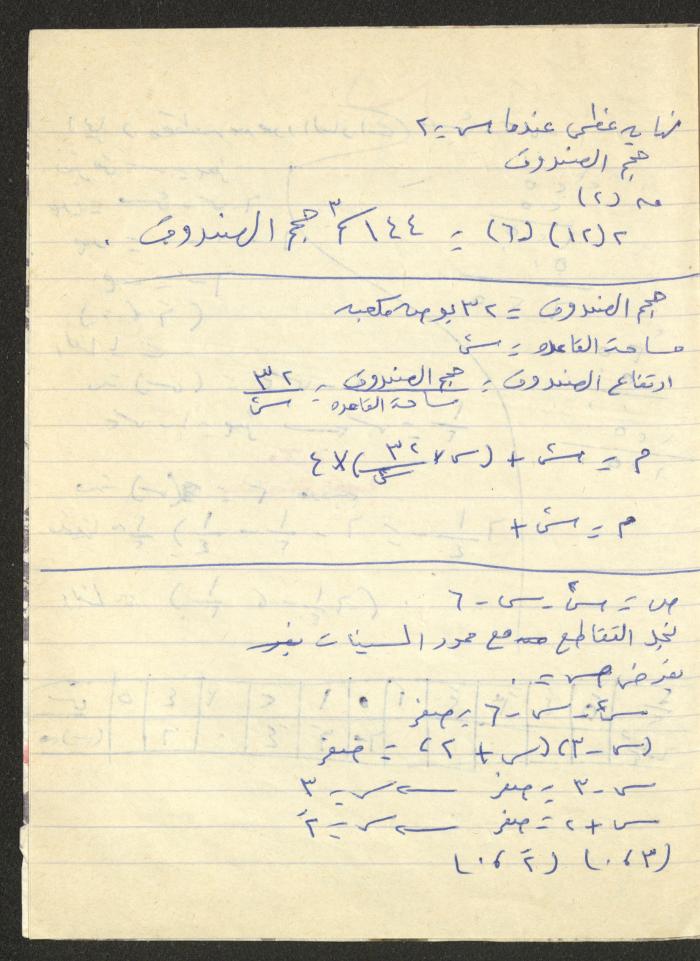 نهايه عظمى عندما س = ٢
حجم الصندوق
ص (٢)
٢ (١٢) (٦) = ١٤٤ سم٣ حجم الصندوق .
حجم الصندوق = ٣٢ بوصه مكعبه
مساحة القاعده = س٢
ارتفاع الصندوق = حجم الصندوق / مساحة القاعده = ٣٢ / س٢
م = س٢ + (س × ٣٢ / س٢) × ٤
م = س٢ +
ص = س٢ - س - ٦
نجد التقاطع مع محور السينات
بفرض ص = ٠
س٢ - س - ٦ = صفر
(س - ٣) (س + ٢) = صفر
س - ٣ = صفر ← س = ٣
س + ٢ = صفر ← س = -٢
(٣ ، ٠) (-٢ ، ٠)